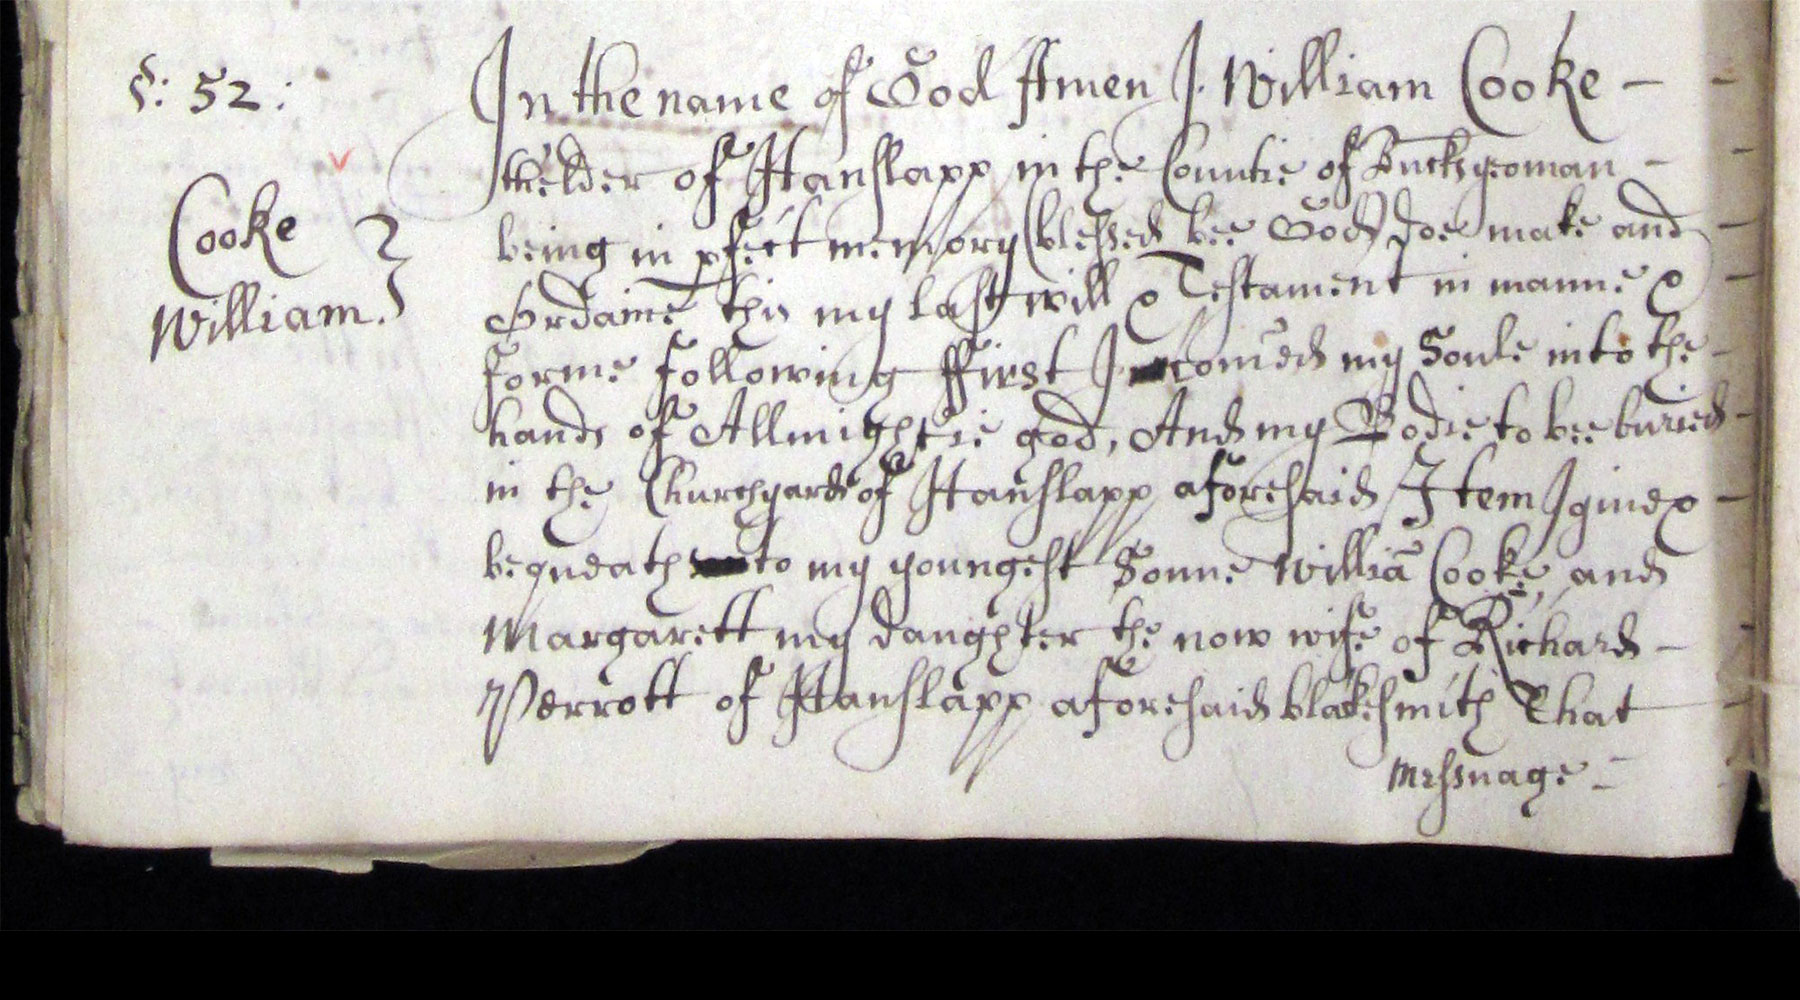 §: 52:
Cooke
William.
In the name of God Amen I. William Cooke -
thelder of Hanslapp in the Countie of Bucks yeoman -
being in pfect memory (blessed bee God) doe make and
Ordaine this my last will & Testament in manne &
forme following ffirst I comēd my Soule into the -
hands of Allmightie god, And my Bodie to bee buried -
in the Churchyard of Hanslapp aforesaid Item I give & -
bequeath to my youngest Sonne Williā Cooke, and
Margarett my daughter the now wife of Richard -
Perrott of Hanslapp aforesaid blakesmith That
messuage -